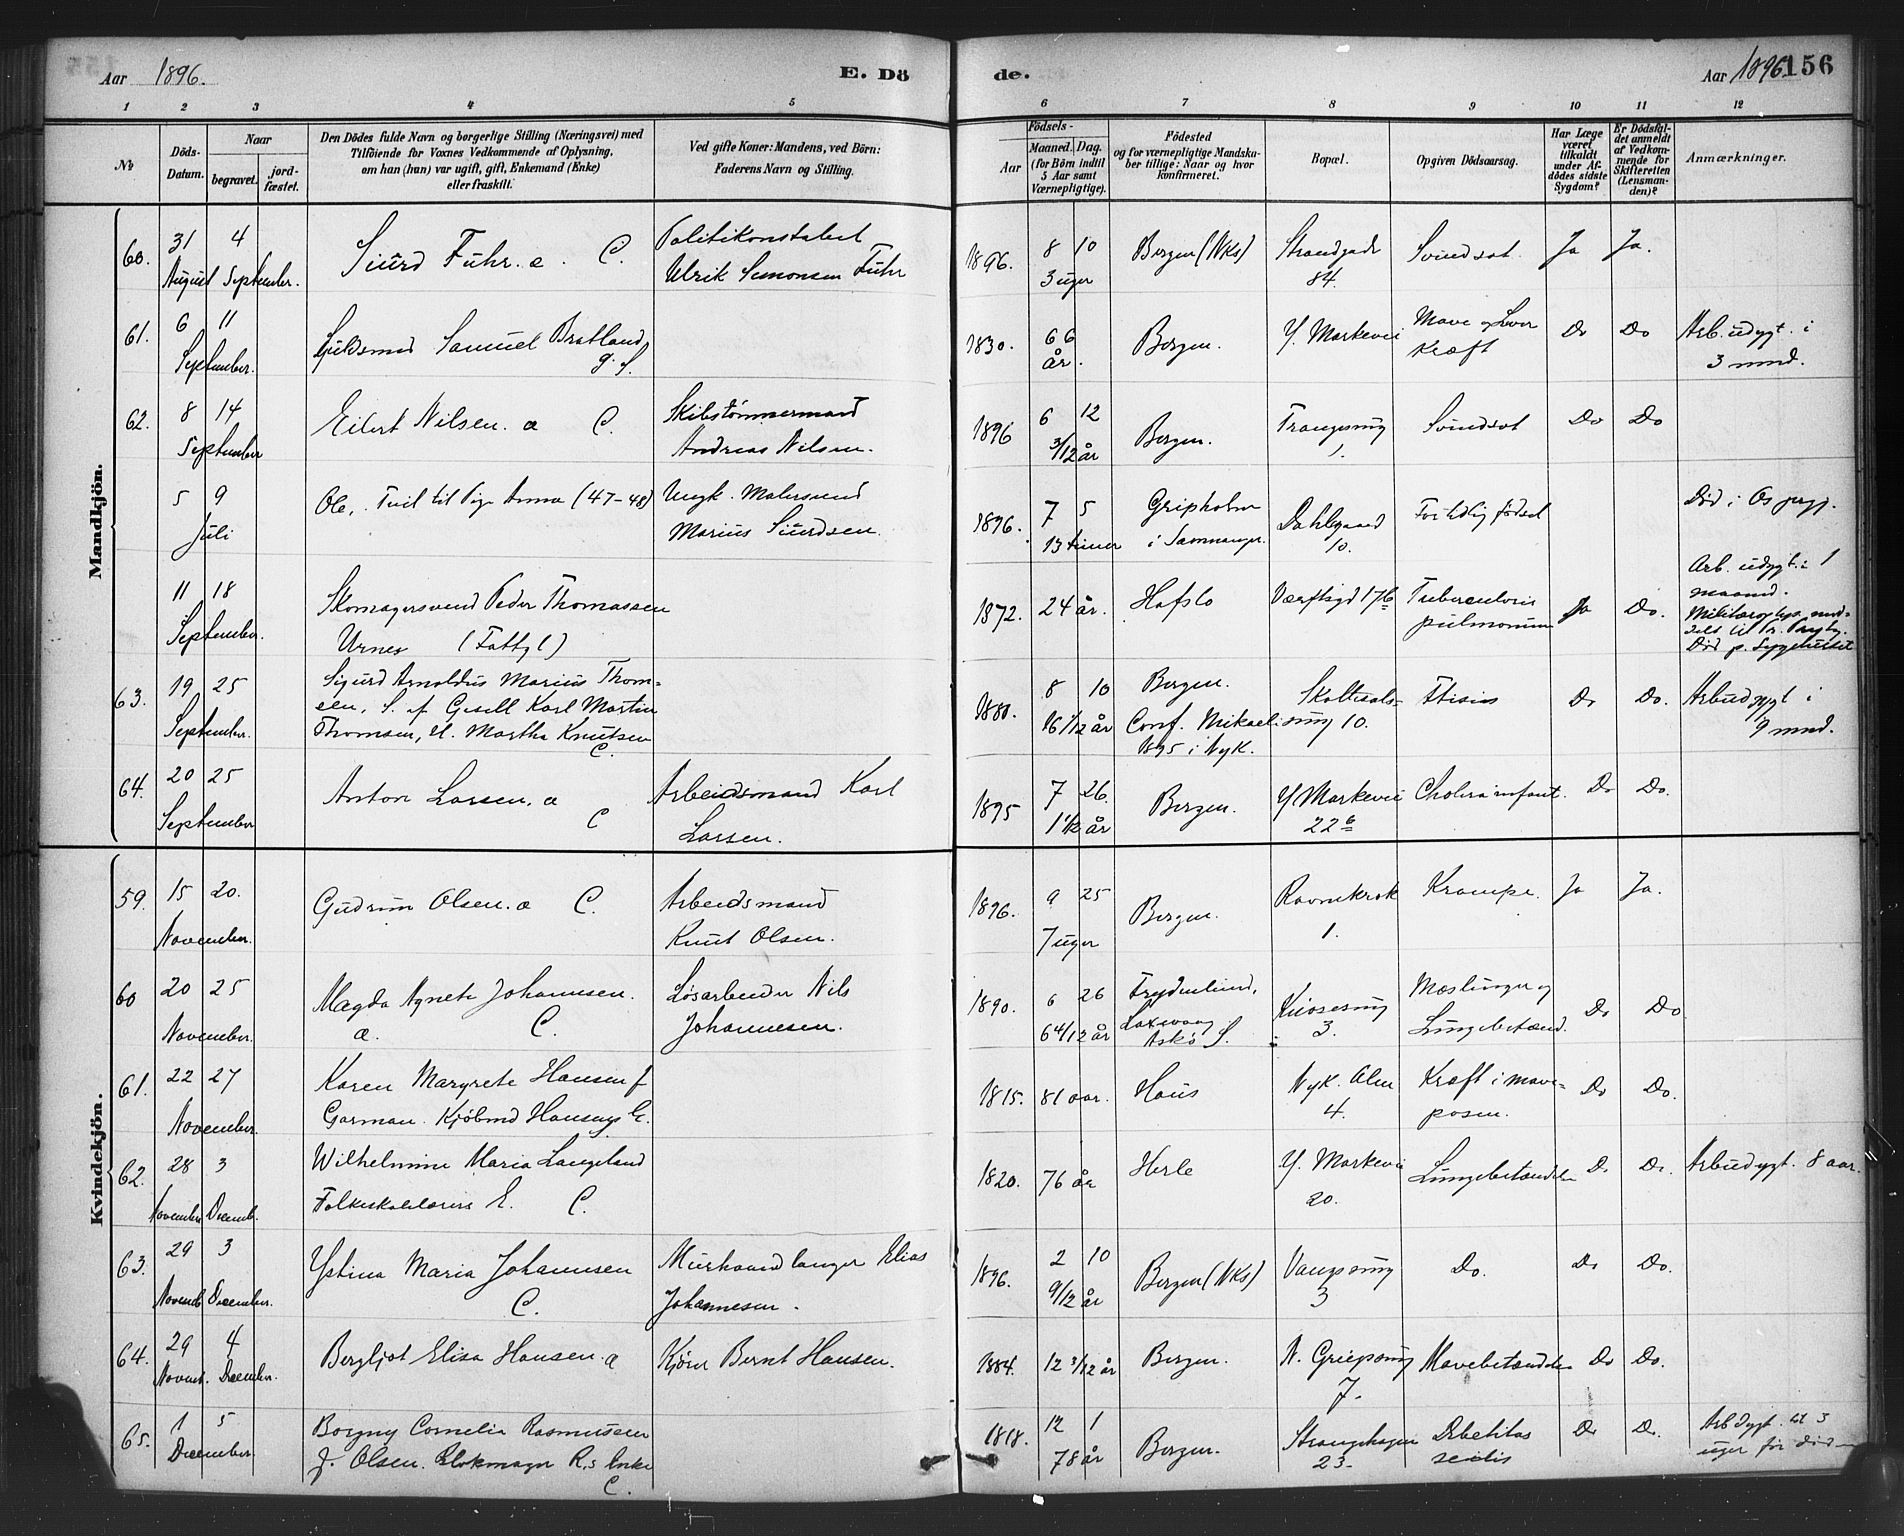 Aar 1896.
E. Dö
de.
Aar 1896.
156
1 2 3 4 5 6 7 8 9 10 11 12
No
Döds-
Datum.
Naar
begravet.
jord-
fæstet.
Den Dödes fulde Navn og borgerlige Stilling (Næringsvei) med
Tilföiende for Voxnes Vedkommende af Oplysning,
om han (hun) var ugift, gift, Enkemand (Enke)
eller fraskilt.
Ved gifte Koner: Mandens, ved Börn:
Faderens Navn og Stilling.
Födsels-
Aar
Maaned. Dag.
(for Börn indtil
5 Aar samt
Værnepligtige).
Födested
og for værnepligtige Mandska-
ber tillige: Naar og hvor
konfirmeret.
Bopæl.
Opgiven Dödsaarsag.
Har Læge
været
tilkaldt
under Af-
dödes sidste
Sygdom?
Er Dödsfal-
det anmeldt
af Vedkom-
mende for
Skifteretten
(Lensman-
den)?
Anmærkninger.
Mandkjön.
60. 31 4 Siurd Fuhr. a. C. Politikonstabel 1896. 8 10 Bergen (Nks) Strandgade Svindsot. Ja Ja.
August September. Ulrik Simonsen Fuhr 3 uger 84.
61. 6 11 Guldsmed Samuel Bratland 1830. 66 Bergen. Y. Markevei Mave og Lever Do Do Arb. udygt. i
September. g. S. år. Kræft 3 mnd.
62. 8 14 Eilert Nilsen. a C. Skibstømmermand 1896 6 12 Bergen. Trangesmug Svindsot Do Do
September Andreas Nilsen. 3/12 år 1.
5 9 Ole, Tvil til Pige Anna (47-48) Ungk. Malersvend 1896. 7 5 Gripholm Dahlegaard For tidlig fødsel Död i Os prgj.
Juli Marius Siurdsen. 13 timer i Samnanger. 10.
11 18 Skomagersvend Peder Thomassen 1872. 24 år. Hafslo Værftsgd 17b Tuberculosis Ja Do. Arb. udygt. i 1
September. Urnes (Fattgl) pulmonum maaned.
Död p. Sygehuset
63. 19 25 Sigurd Arnoldus Marius Thom- 1880. 8 10 Bergen. Skottesals- Ftisis Do Do. Arbudygt i
September. sen, S. af Gesell Karl Martin 16 1/12 år Conf. Mikaeli smug 10. 9 mnd.
Thomsen, H. Martha Knutsen 1895 i Nyk.
C.
64. 20 25 Anton Larsen, a Arbeidsmand Karl 1895 7 26. Bergen. Y Markevei Cholera infant. Do Do.
September C Larsen. 1 1/12 år 22 b
Kvindekjön.
59. 15 20. Gudrun Olsen. a C. Arbeidsmand 1896. 9 25 Bergen. Ravnekrok Krampe. Ja Ja.
November. Knut Olsen. 7 uger 1.
60 20 25 Magda Agnete Johannesen. Løsarbeider Nils 1890. 6 26 Frydenlund, Kiosesmug Mæslinger og Do Do
November. a. C. Johannesen. 6 4/12 år Laxevaag Askö S. 3. Lungebetænd.
61. 22 27 Karen Margrete Hansen f 1815. 81 aar. Haus Nyk. Alm Kræft i mave- Do Do.
November. Garman. Kjöbmd Hansens E. 4. posen.
62. 28 3 Wilhelmine Maria Langeland 1820. 76 år Herle Y. Markevei Lungebetændelse Do Do. Arbudygt. 8 aar.
November Decemb. Folkeskolelærers E. C. 20.
63. 29 3 Ystina Maria Johannesen Murhaandlanger Elias 1896. 2 10 Bergen (Nks) Vangsmug Do. Do Do.
Novemb December. C. Johannesen. 9/12 år 3
64. 29 4 Bergljot Elisa Hansen. a Kjörer Bernt Hansen. 1884. 12 3/12 år Bergen. N. Griepsmug Mavebetændelse Do Do.
Novemb. December. 7.
65. 1 5 Borgny Cornelia Rasmussen 1818. 12 1 Bergen. Strangehagen Debetitas Do Do. Arbdygt. til 3
December. f. Olsen. Blokmager R.s Enke 78 år 23. senilis uger før død
C.